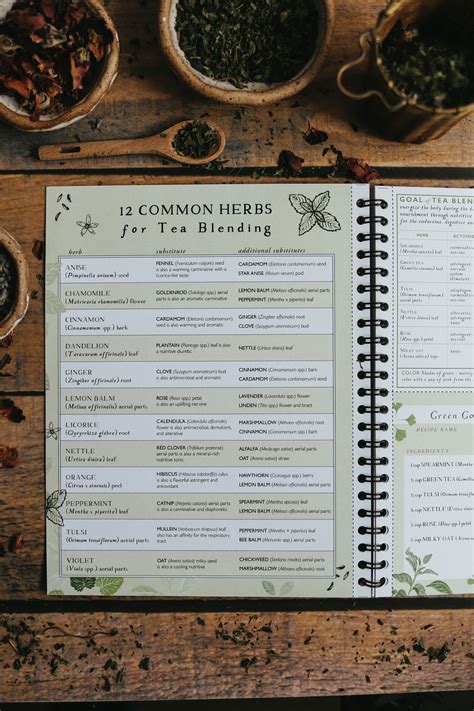 12 COMMON HERBS
for Tea Blending
herb substitute additional substitutes
ANISE
(Pimpinella anisum) seed
FENNEL (Foeniculum vulgare) seed
is also a warming carminative with a
licorice-like taste
CARDAMOM (Elettaria cardamomum) seed
STAR ANISE (Illicium verum) pod
CHAMOMILE
(Matricaria chamomilla) flower
GOLDENROD (Solidago spp.) aerial
parts is also an aromatic carminative
LEMON BALM (Melissa officinalis) aerial parts
PEPPERMINT (Mentha × piperita) leaf
CINNAMON
(Cinnamomum spp.) bark
CARDAMOM (Elettaria cardamomum)
seed is also warming and aromatic
GINGER (Zingiber officinale) rhizome
CLOVE (Syzygium aromaticum) bud
DANDELION
(Taraxacum officinale) leaf
PLANTAIN (Plantago spp.) leaf is also
a nutritive diuretic
NETTLE (Urtica dioica) leaf
GINGER
(Zingiber officinale) rhizome
CLOVE (Syzygium aromaticum) bud
is also antimicrobial and aromatic
CARDAMOM (Elettaria cardamomum) seed
CINNAMON (Cinnamomum spp.) bark
LEMON BALM
(Melissa officinalis) aerial parts
ROSE (Rosa spp.) petal
is also an uplifting nervine
LAVENDER (Lavandula spp.) flower
LINDEN (Tilia spp.) flower and bract
LICORICE
(Glycyrrhiza glabra) root
CALENDULA (Calendula officinalis)
flower is also antimicrobial, demulcent,
and alterative
MARSHMALLOW (Althaea officinalis) root
CINNAMON (Cinnamomum spp.) bark
NETTLE
(Urtica dioica) leaf
RED CLOVER (Trifolium pratense)
aerial parts is also a mineral-rich
nutritive
ALFALFA (Medicago sativa) aerial parts
OAT (Avena sativa) straw
ORANGE
(Citrus x sinensis) peel
HIBISCUS (Hibiscus sabdariffa) calyx
is also a flavorful astringent and
antioxidant
HAWTHORN (Crataegus spp.) berry
LEMON BALM (Melissa officinalis) aerial parts
PEPPERMINT
(Mentha x piperita) leaf
CATNIP (Nepeta cataria) aerial parts
is also a calming carminative
SPEARMINT (Mentha spicata) leaf
LEMON BALM (Melissa officinalis) aerial parts
TULSI
(Ocimum tenuiflorum) aerial parts
MULLEIN (Verbascum thapsus) leaf
also has an affinity for the respiratory
tract
PEPPERMINT (Mentha × piperita) leaf
BEE BALM (Monarda spp.) aerial parts
VIOLET
(Viola spp.) aerial parts
OAT (Avena sativa) milky seed
is also a cooling nutritive
CHICKWEED (Stellaria media) aerial parts
MARSHMALLOW (Althaea officinalis) root
GOAL of TEA BLEN
energize the body during the da
nourishment through nutritive
for the endocrine, digestive
HERB ACTIONS
SPEARMINT
(Mentha spicata)
leaf
GREEN TEA
leaf
TULSI
(Ocimum
tenuiflorum)
aerial parts
NETTLE
(Urtica dioica)
leaf
ROSE
(Rosa spp.)
petal
MILKY OAT
COLOR
Green Go
RECIPE NAME
INGREDIENTS
SPEARMINT (M
GREEN TEA (
TULSI (Ocimum
NETTLE (Urtica
ROSE (Rosa spp.)
MILKY OAT (Avena